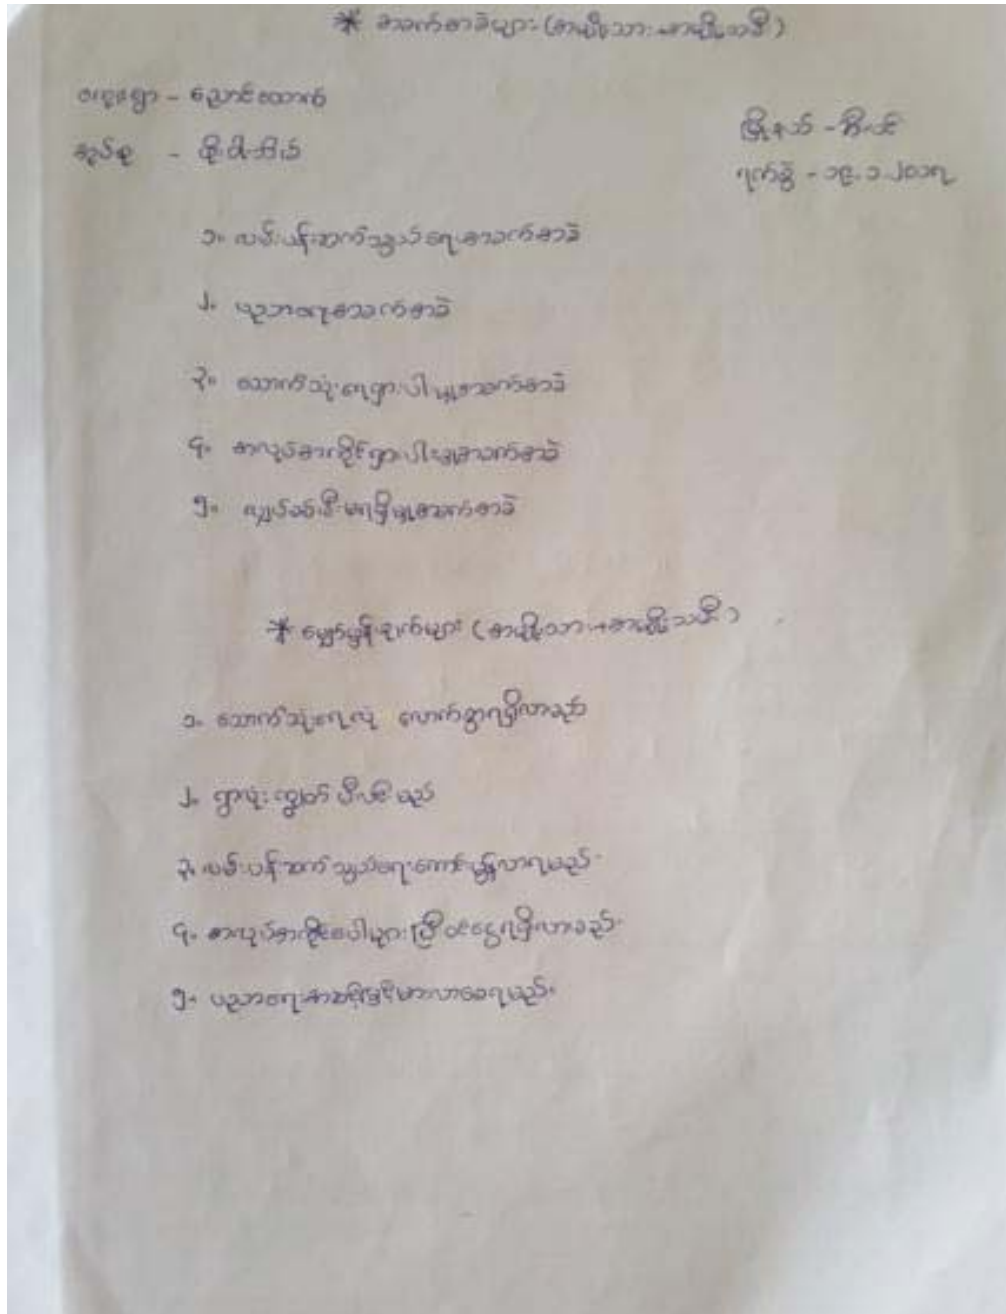 * အခက်အခဲများ (အမျိုးသား+အမျိုးသမီး)
ကျေးရွာ - ညောင်ထောက်
အုပ်စု -
မြို့နယ် - ဘီးလင်း
ရက်စွဲ - ၁၉.၁.၂၀၁၇
၁။ လမ်းပန်းဆက်သွယ်ရေးအခက်အခဲ
၂။ ပညာရေးအခက်အခဲ
၃။ သောက်သုံးရေရှားပါးမှုအခက်အခဲ
၄။ အလုပ်အကိုင်ရှားပါးမှုအခက်အခဲ
၅။ လျှပ်စစ်မီးမရရှိမှုအခက်အခဲ
* မျှော်မှန်းချက်များ (အမျိုးသား+အမျိုးသမီး)
၁။ သောက်သုံးရေလုံလောက်စွာရရှိလာမည်
၂။ ရွာလုံးကျွတ် မီးလင်းမည်
၃။ လမ်းပန်းဆက်သွယ်ရေးကောင်းမွန်လာရမည်။
၄။ အလုပ်အကိုင်ပေါများပြီးဝင်ငွေရရှိလာမည်။
၅။ ပညာရေးအဆင့်မြင့်မားလာစေရမည်။